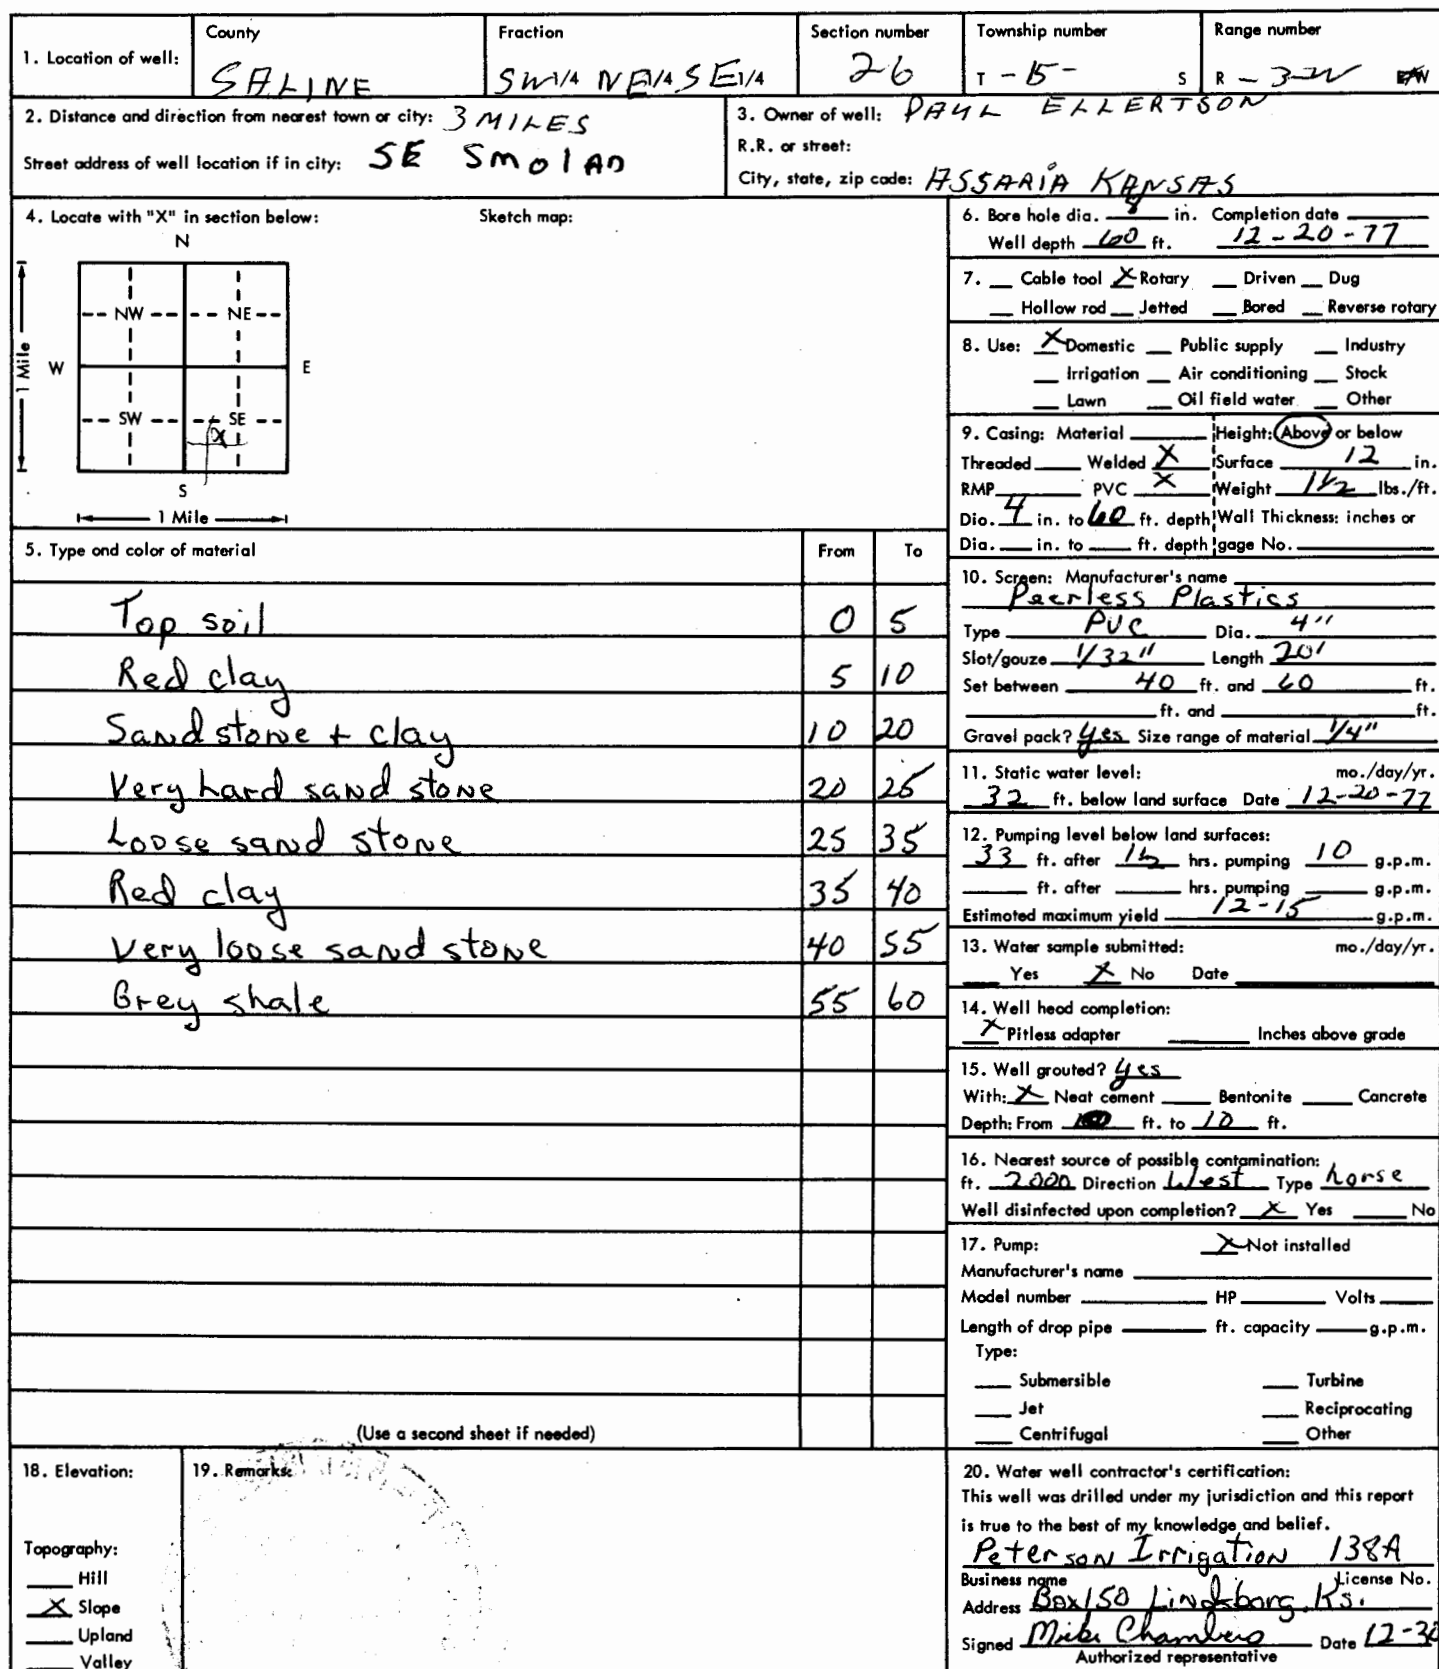 1. Location of well: County SALINE Fraction SW1/4 NE1/4 SE1/4 Section number 26 Township number T -15- S Range number R -3-W E/W
2. Distance and direction from nearest town or city: 3 MILES
Street address of well location if in city: SE SmolAD
3. Owner of well: PAUL ELLERTSON
R.R. or street:
City, state, zip code: ASSARIA KANSAS
4. Locate with "X" in section below: Sketch map:
N
NW NE
W E
1 Mile
SW SE
X
S
1 Mile
5. Type and color of material From To
Top soil 0 5
Red clay 5 10
Sand stone + clay 10 20
Very hard sand stone 20 25
Loose sand stone 25 35
Red clay 35 40
Very loose sand stone 40 55
Grey shale 55 60
(Use a second sheet if needed)
6. Bore hole dia. 8 in. Completion date
Well depth 60 ft. 12-20-77
7. Cable tool X Rotary Driven Dug
Hollow rod Jetted Bored Reverse rotary
8. Use: X Domestic Public supply Industry
Irrigation Air conditioning Stock
Lawn Oil field water Other
9. Casing: Material Height: Above or below
Threaded Welded X Surface 12 in.
RMP PVC X Weight 1 1/2 lbs./ft.
Dia. 4 in. to 60 ft. depth Wall Thickness: inches or
Dia. in. to ft. depth gage No.
10. Screen: Manufacturer's name
Peerless Plastics
Type PVC Dia. 4"
Slot/gauze 1/32" Length 20'
Set between 40 ft. and 60 ft.
ft. and ft.
Gravel pack? yes Size range of material 1/4"
11. Static water level: mo./day/yr.
32 ft. below land surface Date 12-20-77
12. Pumping level below land surfaces:
33 ft. after hrs. pumping 10 g.p.m.
ft. after hrs. pumping g.p.m.
Estimated maximum yield 12-15 g.p.m.
13. Water sample submitted: mo./day/yr.
Yes X No Date
14. Well head completion:
X Pitless adapter Inches above grade
15. Well grouted? yes
With: X Neat cement Bentonite Concrete
Depth: From ft. to 10 ft.
16. Nearest source of possible contamination:
ft. 2000 Direction West Type horse
Well disinfected upon completion? X Yes No
17. Pump: X Not installed
Manufacturer's name
Model number HP Volts
Length of drop pipe ft. capacity g.p.m.
Type:
Submersible Turbine
Jet Reciprocating
Centrifugal Other
18. Elevation:
Topography:
Hill
X Slope
Upland
Valley
19. Remarks:
20. Water well contractor's certification:
This well was drilled under my jurisdiction and this report
is true to the best of my knowledge and belief.
Peterson Irrigation 138A
Business name License No.
Address Box 150 Lindsborg, Ks.
Signed Mike Chambers Date 12-30
Authorized representative